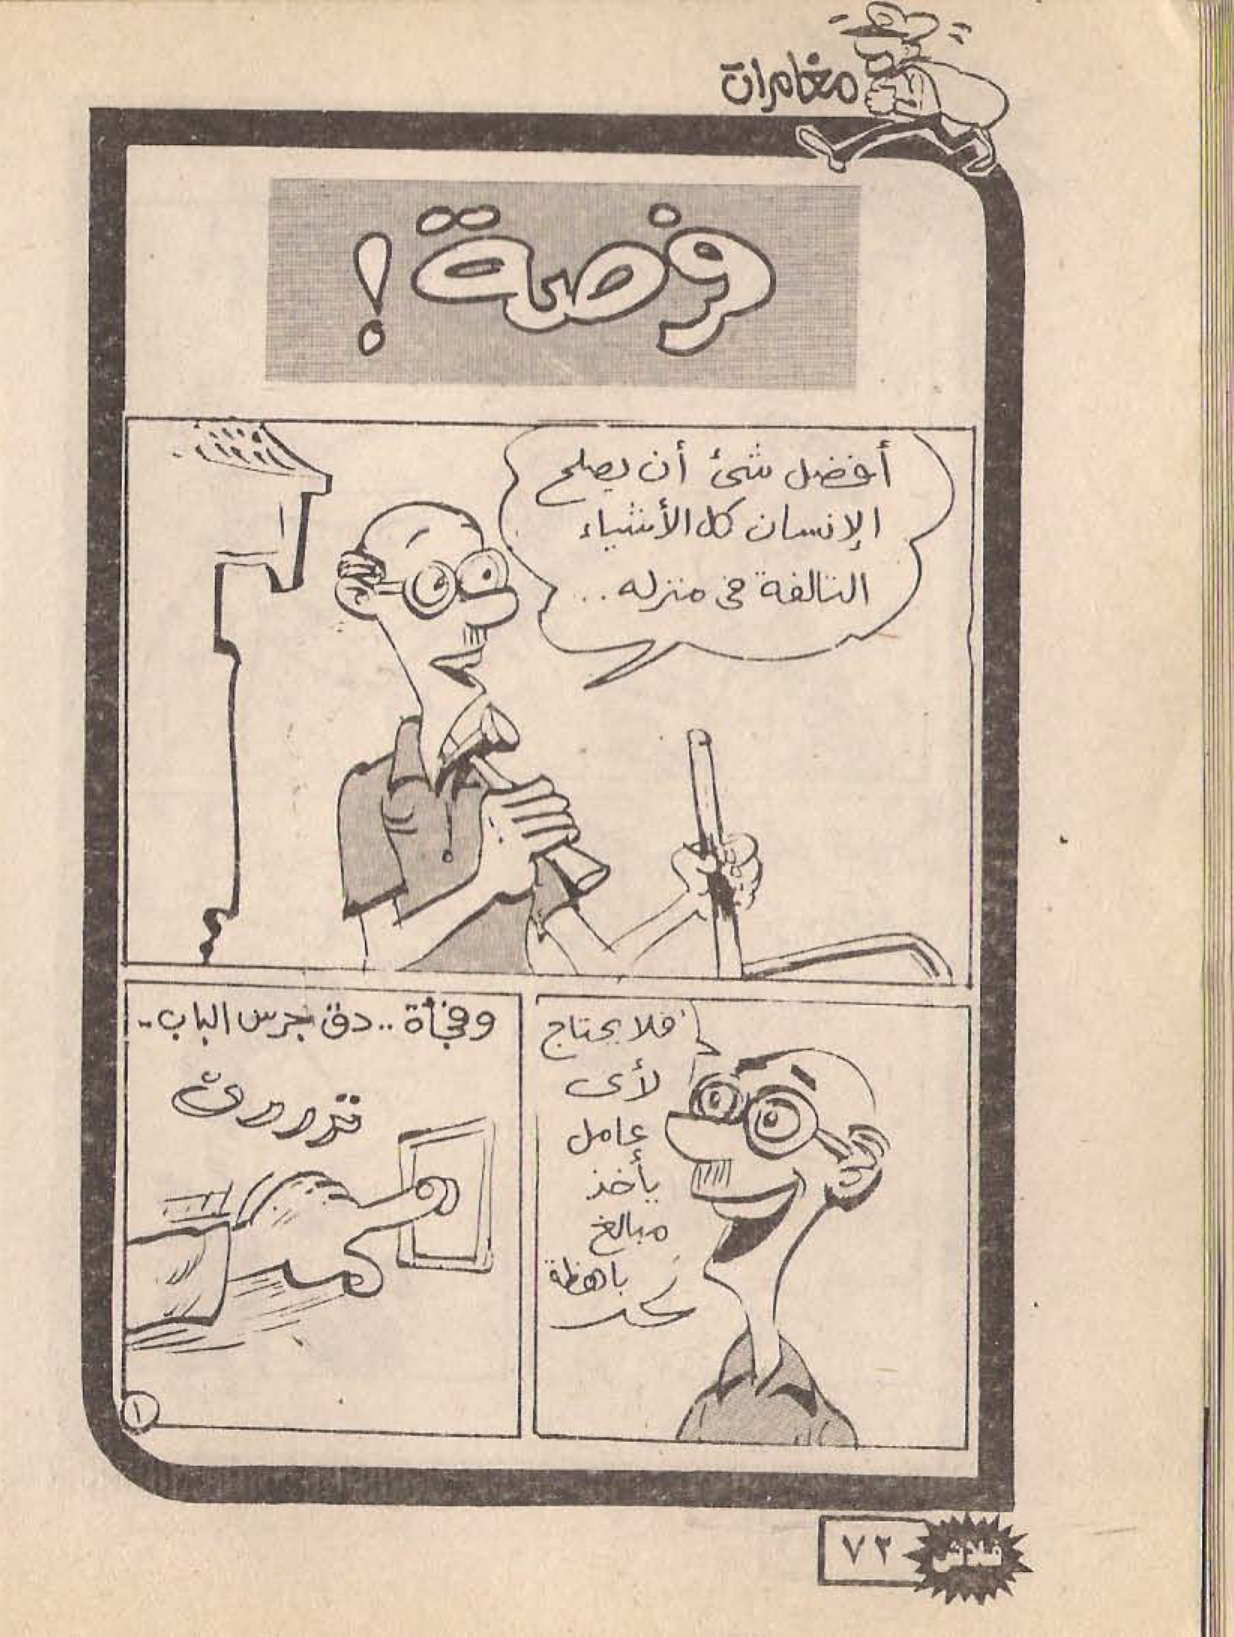 مغامرات
فرصة !
أفضل شئ أن يصلح
الإنسان كل الأشياء
التالفة فى منزله ..
فلا يحتاج
لأى
عامل
يأخذ
مبالغ
باهظة
وفجأة .. دق جرس الباب ..
تررررن
١
فلاش
٧٢